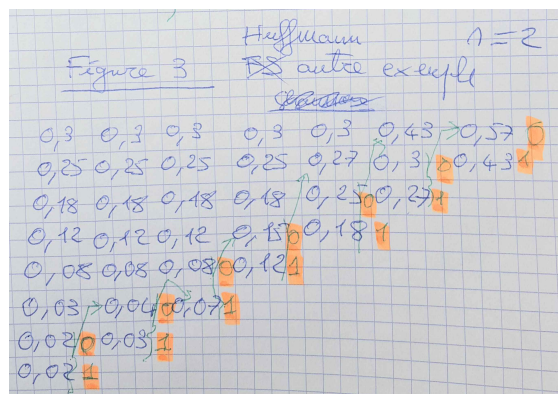 Huffmann n = 2
Figure 3 autre exemple
0,3 0,3 0,3 0,3 0,3 0,43 0,57 0
0,25 0,25 0,25 0,25 0,27 0,3 0 0,43 1
0,18 0,18 0,18 0,18 0,25 0 0,27 1
0,12 0,12 0,12 0,15 0 0,18 1
0,08 0,08 0,08 0 0,12 1
0,03 0,04 0 0,07 1
0,02 0 0,03 1
0,02 1